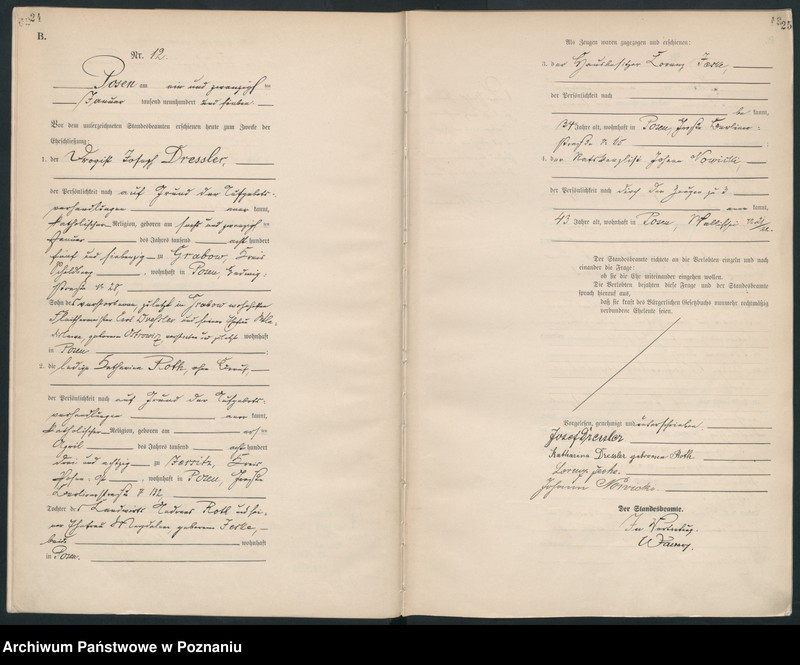 24
B.
Nr. 12.
Posen am ein und zwanzigsten
Januar tausend neunhundert und sieben
Vor dem unterzeichneten Standesbeamten erschienen heute zum Zwecke der
Eheschließung:
1. der Drogist Josef Dressler,
der Persönlichkeit nach auf Grund der Aufgebots-
verhandlungen anerkannt,
katholischer Religion, geboren am sechs und zwanzigsten
Januar des Jahres tausend achthundert
fünf und siebenzig zu Grabow, Kreis
Schildberg, wohnhaft in Posen,
straße
Sohn des verstorbenen, zuletzt in Grabow wohnhaften
Carl Dressler und seiner Ehefrau
geborenen wohnhaft
in Posen
2. die ledige Katharina Roth, ohne Beruf,
der Persönlichkeit nach auf Grund der Aufgebots-
verhandlungen anerkannt,
katholischer Religion, geboren am
April des Jahres tausend achthundert
drei und achtzig zu Jersitz, Kreis
Posen, wohnhaft in Posen, Große
Berlinerstraße
Tochter des Landwirts Andreas Roth und sei-
ner Ehefrau Magdalena geborenen
beide wohnhaft
in Posen.
25
Als Zeugen waren zugezogen und erschienen:
3. der Hausbesitzer Lorenz
der Persönlichkeit nach
bekannt,
Jahre alt, wohnhaft in Posen, Große Berliner-
straße
4. der Ratskanzlist Johann Nowicki,
der Persönlichkeit nach durch den Zeugen zu 3
anerkannt,
43 Jahre alt, wohnhaft in Posen, Wallischei
Der Standesbeamte richtete an die Verlobten einzeln und nach
einander die Frage:
ob sie die Ehe miteinander eingehen wollen.
Die Verlobten bejahten diese Frage und der Standesbeamte
sprach hierauf aus,
daß sie kraft des Bürgerlichen Gesetzbuchs nunmehr rechtmäßig
verbundene Eheleute seien.
Vorgelesen, genehmigt und unterschrieben.
Josef Dressler
Katharina Dressler geborene Roth.
Lorenz
Johann Nowicki.
Der Standesbeamte.
In Vertretung.
Archiwum Państwowe w Poznaniu